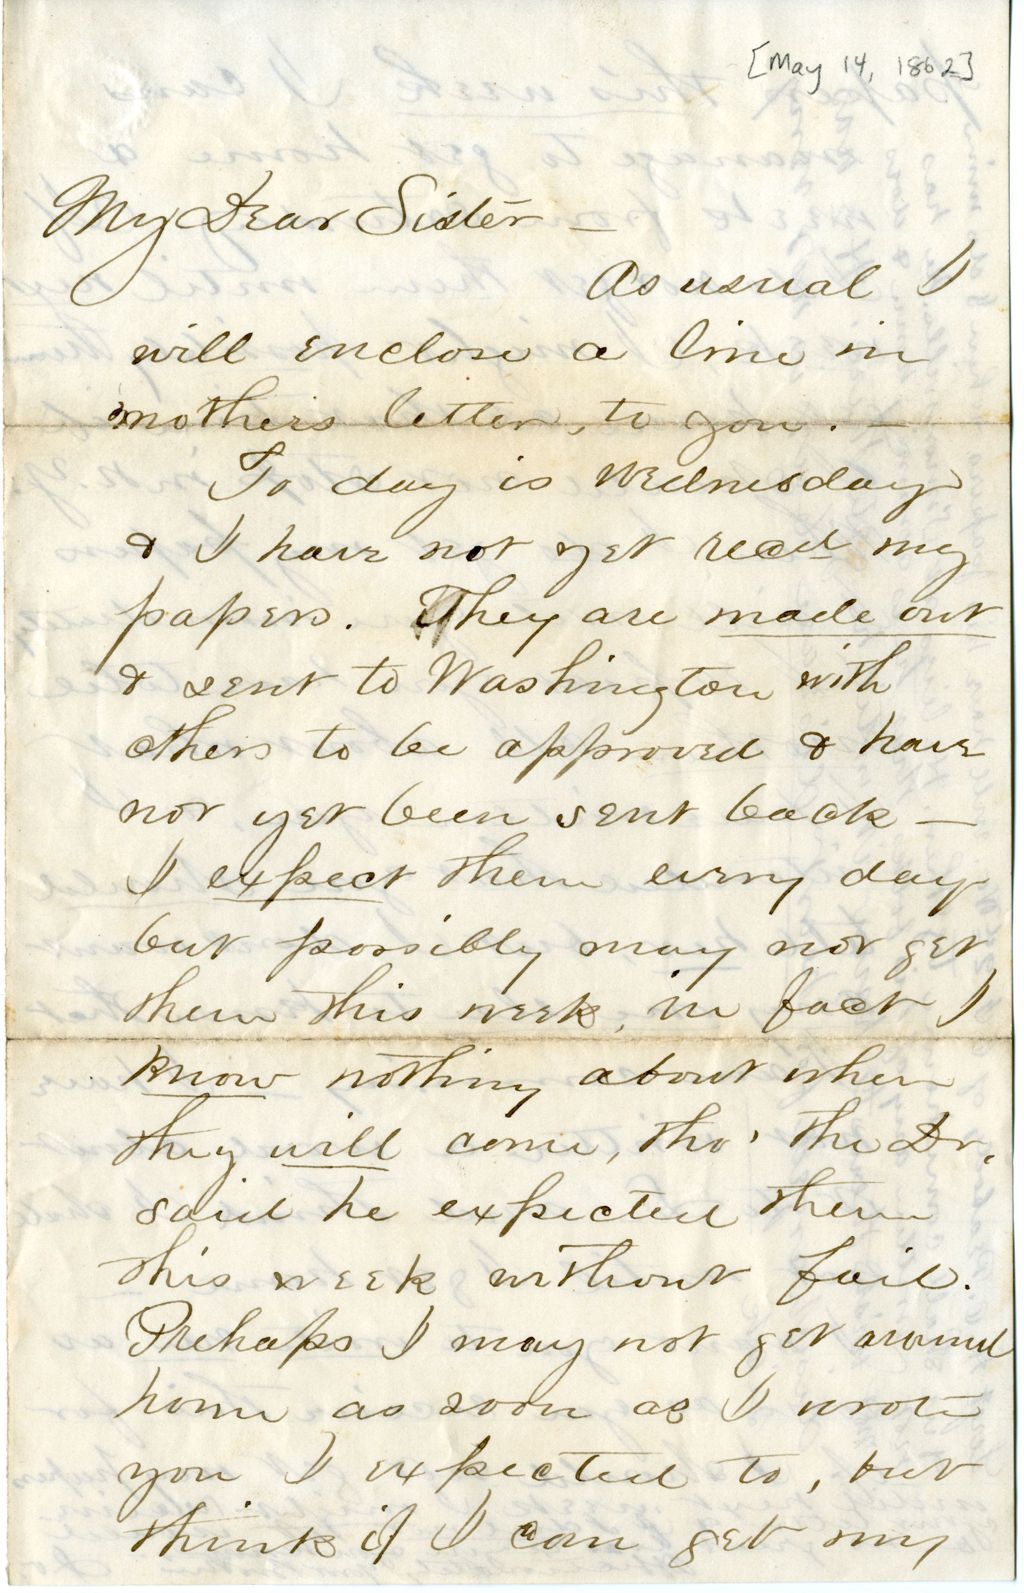 [May 14, 1862]
My Dear Sister —
As usual I
will enclose a line in
mothers letter, to you. —
To day is Wednesday
& I have not yet recd my
papers. They are made out
& sent to Washington with
others to be approved & have
not yet been sent back —
I expect them every day
but possibly may not get
them this week, in fact I
know nothing about when
they will come, tho' the Dr.
said he expected them
this week without fail.
Prehaps I may not get around
home as soon as I wrote
you I expected to, but
think if I can get my